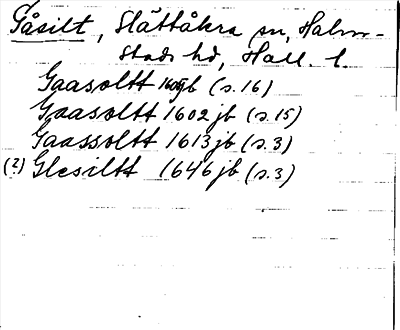 Gåsilt, Slättåkra sn, Halm-
stads hd, Hall. l.
Gaasoltt jb (s.16)
Gaasoltt 1602 jb (s.15)
Gaassoltt 1613 jb (s.3)
(?) Glesiltt 1646 jb (s.3)